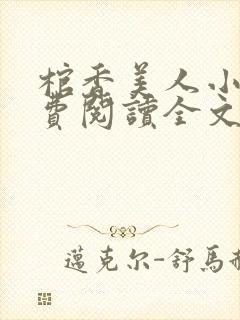 棺香美人小
費閱讀全文
邁克尔-舒馬赫